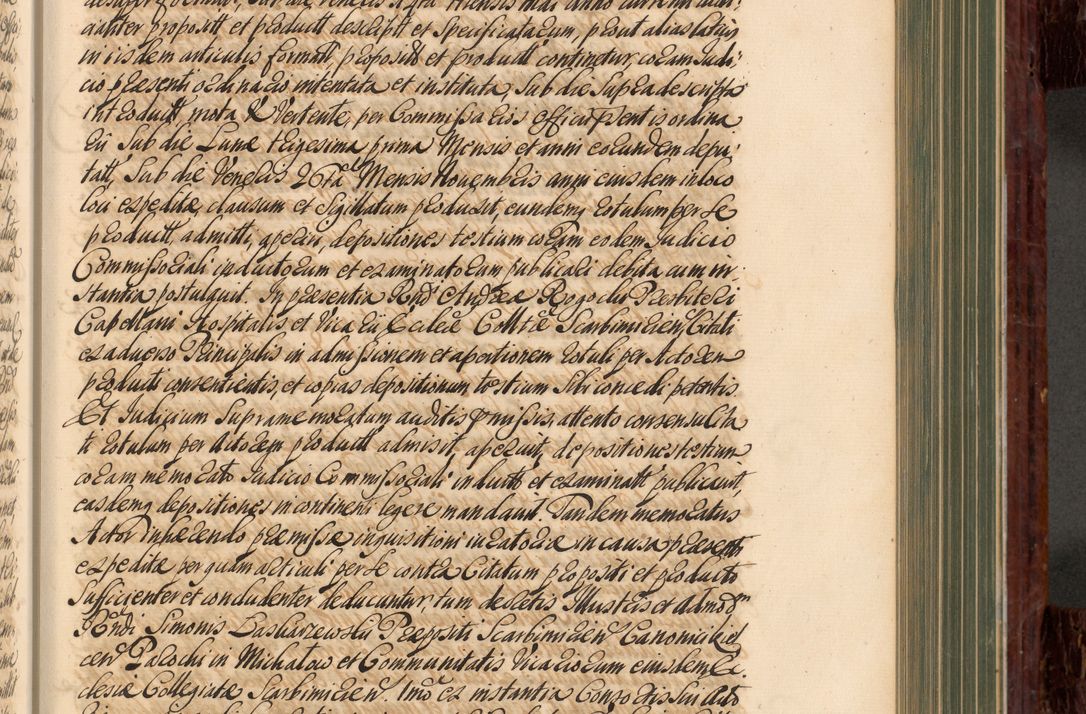 aliter proposit et product descript et Specificatarum, prout alias latius
in iisdem articulis formatt, proposit et product continetur, coram Judi-
cio praesenti ordinario intentata et instituta, Sub die Supra descripta
introductt, mota et Vertente, per Commissarios Officii Psentis ordina
rii Sub die Lunae trigesima prima Mensis et anni eorundem depu-
tatt, Sub die Veneris 26ta Mensis Novembris anni eiusdem in loco
loci expeditae, clausum et Sigillatum produxit, eundemq rotulum per se
productt, admitti, aperiri, depositiones testium coram eodem Judicio
Commissoriali inductorum et examinatorum publicari debita cum in-
stantia postulavit. In praesentia Rndi Andreae Rogocki Presbiteri
Capellani Hospitalis et Vicarii Eccleae Colltae Scarbimirien Citati
ex adverso Principalis in admissionem et apertionem rotuli per Actorem
producti consentientis, et copias depositionum testium Sibi concedi petentis.
Et Judicium Supramemoratum auditis pmissis, attento consensu Cita
ti rotulum per Actorem productt admisit, aperuit, depositiones testium
coram memorato Judicio Commissoriali inductt et examinatt publicavit,
easdemq depositiones in continenti legere mandavit. Tandem memoratus
Actor inhaerendo praemissae inquisitioni iuratoriae in causa praesenti
expeditae per quam articuli per se contra Citatum propositi et producti
Sufficienter et concludenter deducuntur, tum decretis Illustris et Admodm
Rndi Simonis Laskarzewski Praepositi Scarbimirien Canonici Kiel
cen Parochi in Michałow et Communitatis Vicariorum eiusdem Ec
clesiae Collegiatae Scarbimirien. Imo ex instantia Consortis Sui Acto